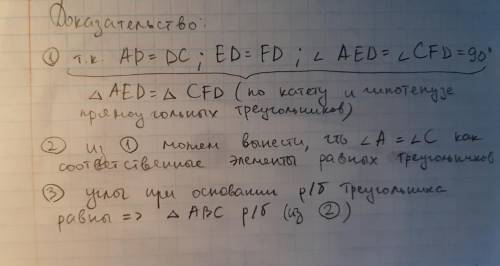 Доказательство:
① т.к. AD = DC ; ED = FD ; ∠ AED = ∠ CFD = 90°
△ AED = △ CFD (по катету и гипотенузе
прямоугольных треугольников)
② из ① можем вынести, что ∠A = ∠C как
соответственные элементы равных треугольников
③ углы при основании р/б треугольника
равны => △ ABC р/б (из ②)